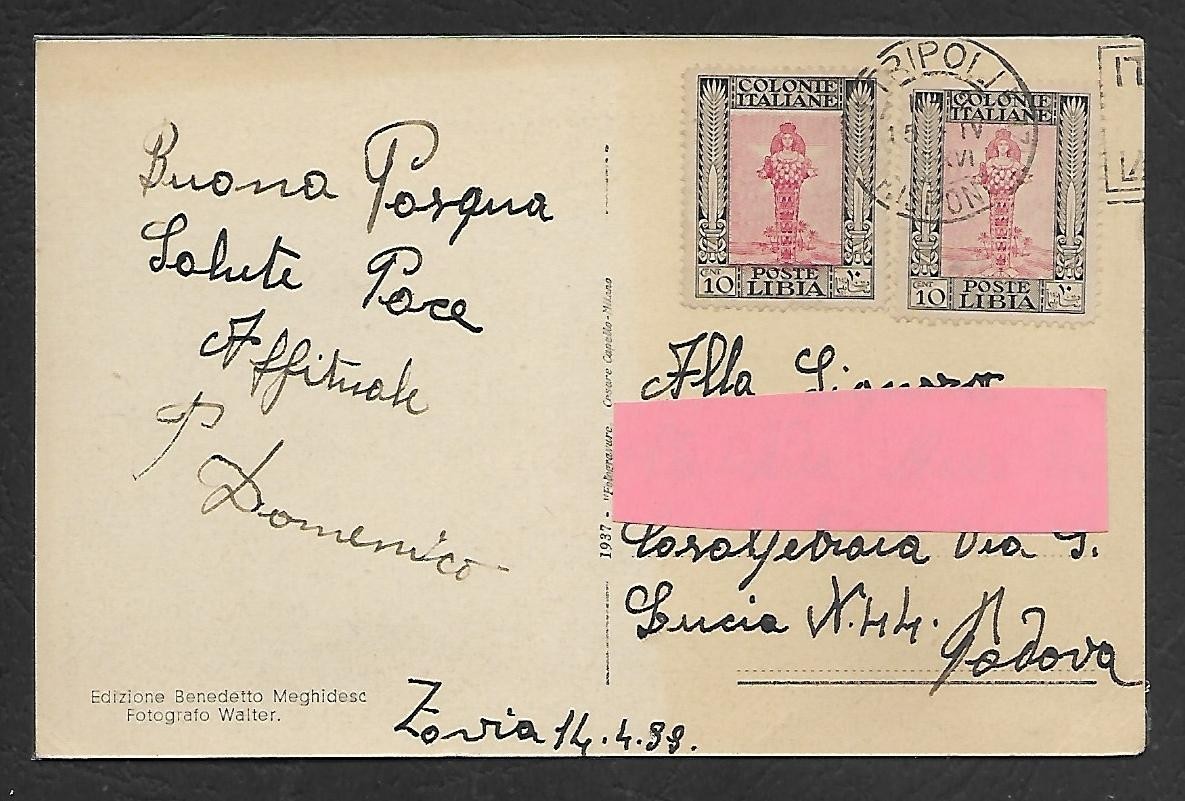 Buona Pasqua
Salute Pace
Affituale
P Domenico
Edizione Benedetto Meghidesc
Fotografo Walter.
Zovia 14.4.38.
1937 - "Fotogravure Cesare Capello - Milano
COLONIE
ITALIANE
CENT 10
POSTE
LIBIA
١٠
COLONIE
ITALIANE
CENT 10
POSTE
LIBIA
١٠
TRIPOLI
15 IV
XVI
IT
Alla Signora
Via S.
Lucia N. 44.
Padova